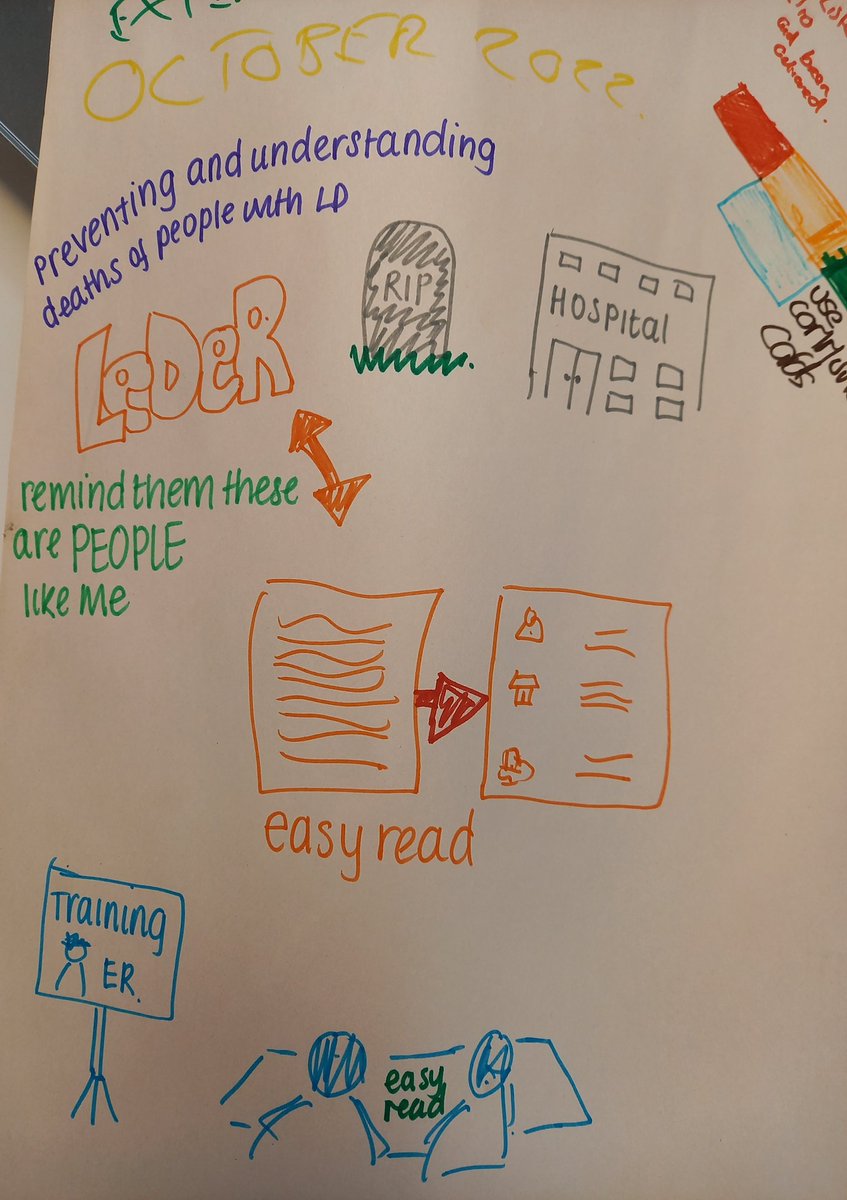 OCTOBER 2022.
preventing and understanding
deaths of people with LD
LeDeR
RIP
HOSPITal
remind them these
are PEOPLE
like me
easy read
Training
ER.
easy
read
been
use